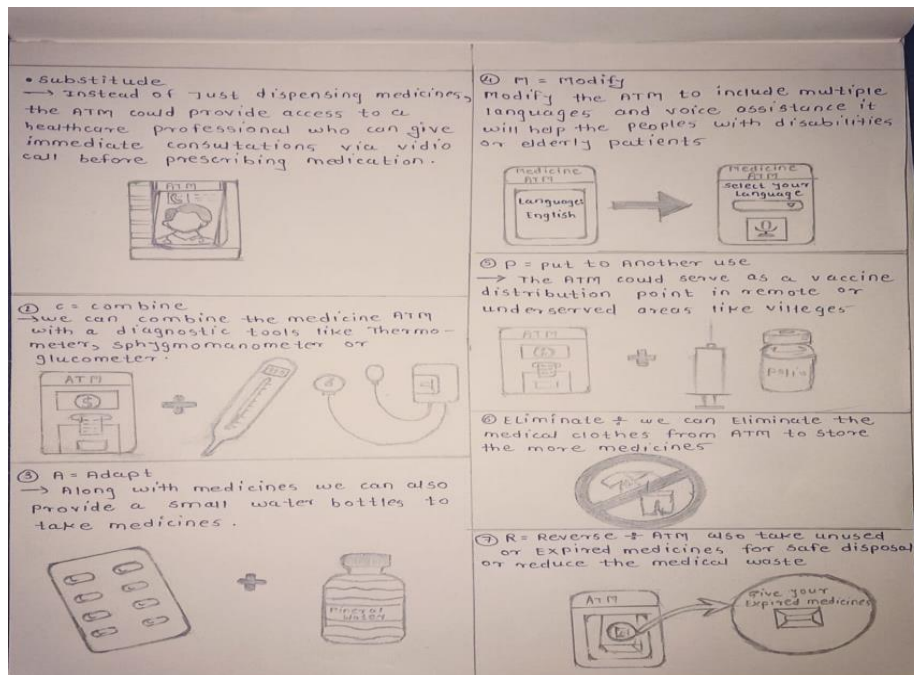 • Substitude
→ Instead of Just dispensing medicines,
the ATM could provide access to a
healthcare professional who can give
immediate consultations via vidio
call before prescribing medication.
ATM
② C = combine
→ we can combine the medicine ATM
with a diagnostic tools like Thermo-
meter, sphygmomanometer or
glucometer.
ATM
$
③ A = Adapt
→ Along with medicines we can also
Provide a small water bottles to
take medicines.
Mineral
Water
④ M = Modify
Modify the ATM to include multiple
languages and voice assistance it
will help the peoples with disabilities
or elderly patients
Medicine
ATM
Languages
English
Medicine
ATM
Select Your
Language
⑤ P = put to Another use
→ The ATM could serve as a vaccine
distribution point in remote or
underserved areas like villeges
ATM
Polio
⑥ Eliminate ÷ we can Eliminate the
medical clothes from ATM to store
the more medicines
⑦ R = Reverse ÷ ATM also take unused
or Expired medicines for safe disposal
or reduce the medical waste
ATM
Give your
Expired medicines